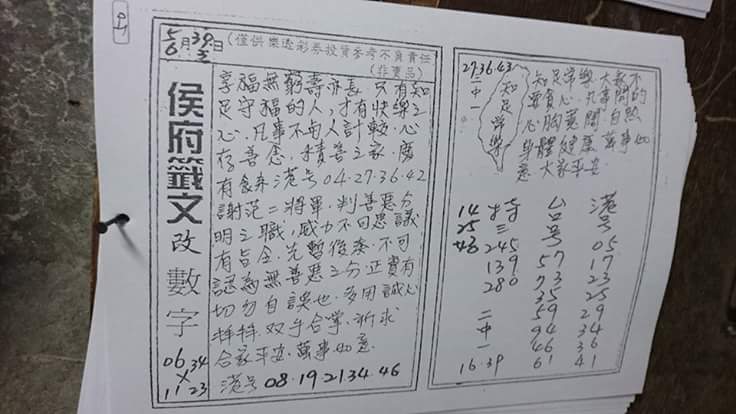 5月30日
6 2
(僅供樂透彩券投資參考不負責任
(非賣品)
侯府籤文
改數字
06 34
×
11 23
享福無窮壽亦長 只有知
足守福的人,才有快樂之
心.凡事不與人計較.心
存善念.積善之家.慶
有餘來港号04-27-36-42
謝范二將軍.判善惡分
明之職,威力不可思議
有旨令.先暫後奏.不可
認為無善惡之分正實有
切勿自誤也.多用誠心
拜拜.双手合掌.祈求
合家平安.萬事如意.
港号08.19 21 34 46
27 36 43
二中一
知足常樂
知足常樂 大家不
要貪心.凡事開的
心胸寬闊自然
身體健康 萬事如
意 大家平安.
14
25
43
三
245
139
280
二
中
一
16.39
台
号
57
73
35
59
94
46
61
港
号
05
17
23
25
29
34
36
41